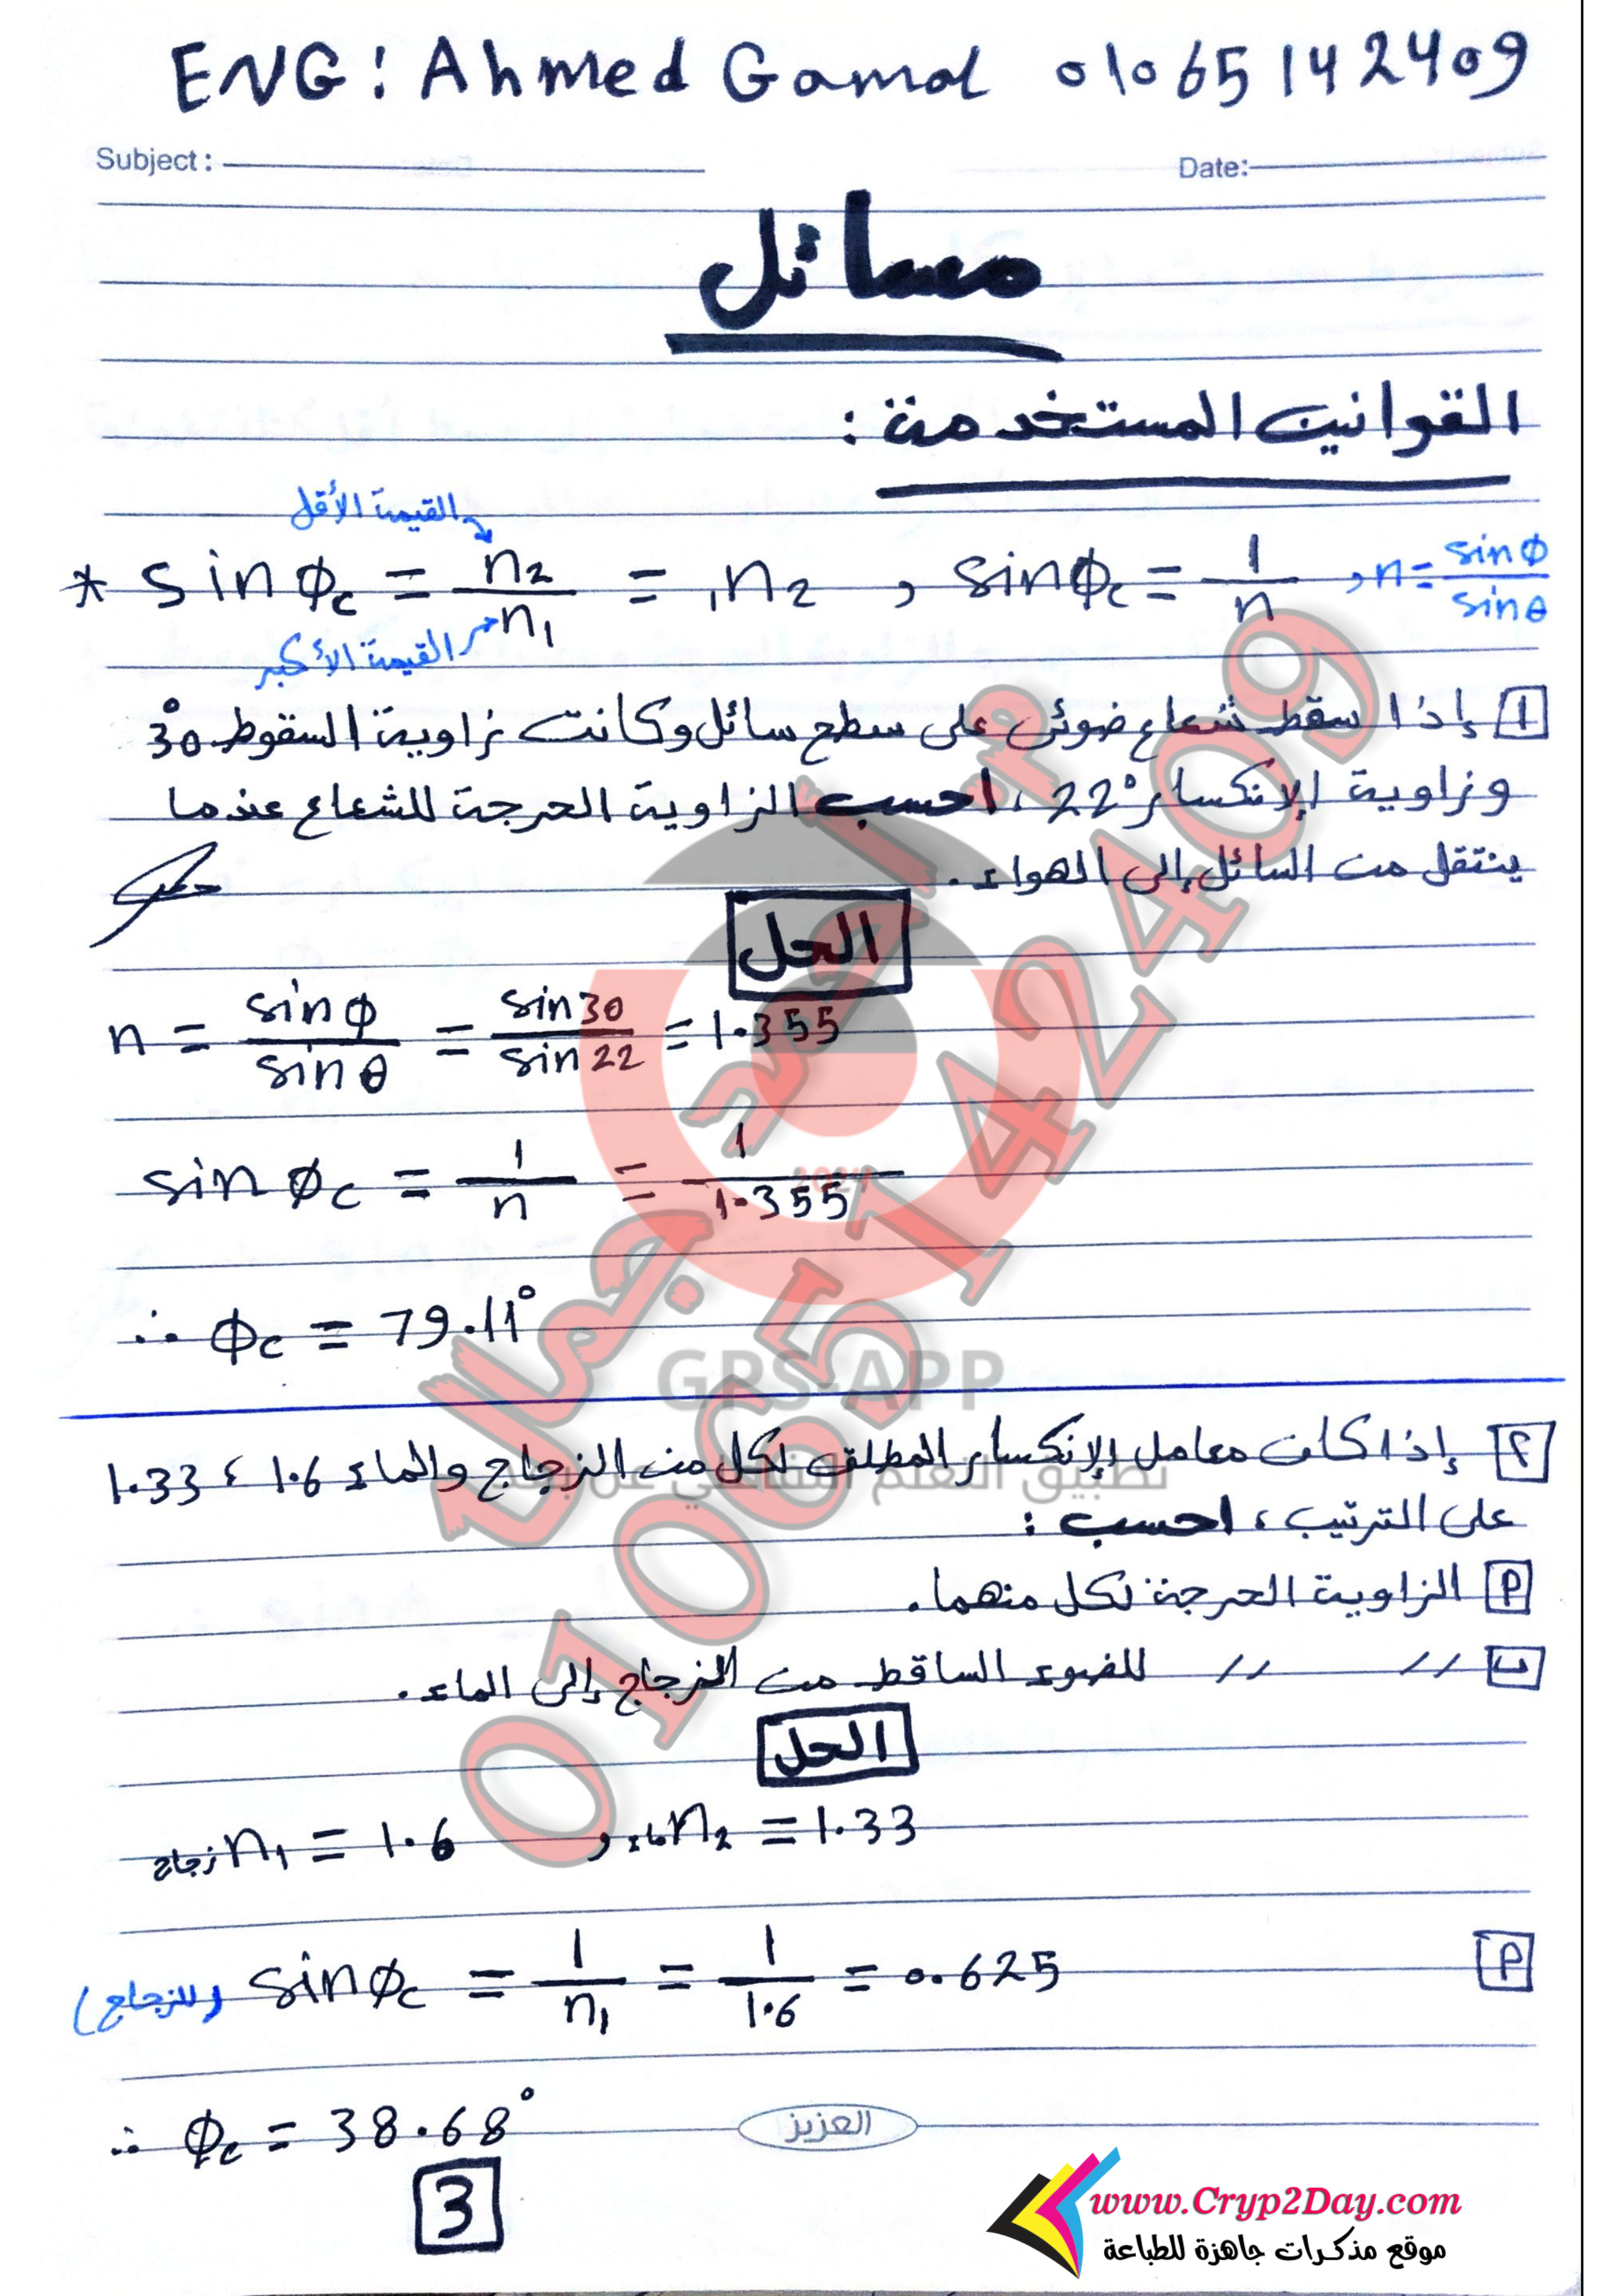 ENG: Ahmed Gamal 01065142409
Subject: Date:
مسائل
القوانين المستخدمة :
القيمة الأقل
* sin φc = n2/n1 = ₁n2 , sin φc = 1/n , n = sin φ/sin θ
القيمة الأكبر
1 إذا سقط شعاع ضوئى على سطح سائل وكانت زاوية السقوط 30°
وزاوية الإنكسار 22° ، احسب الزاوية الحرجة للشعاع عندما
ينتقل من السائل إلى الهواء .
الحل
n = sin φ/sin θ = sin 30/sin 22 = 1.355
sin φc = 1/n = 1/1.355
∴ φc = 79.11°
٢ إذا كان معامل الإنكسار المطلق لكل من الزجاج والماء 1.6 ، 1.33
على الترتيب ، احسب :
أ الزاوية الحرجة لكل منهما .
ب // // للضوء الساقط من الزجاج إلى الماء .
الحل
زجاج n1 = 1.6 , ماء n2 = 1.33
أ
(للزجاج) sin φc = 1/n1 = 1/1.6 = 0.625
∴ φc = 38.68°
العزيز
3
م/ أحمد جمال
01065142409
2024
GPS-APP
تطبيق التعلم التفاعلي عن بعد
www.Cryp2Day.com
موقع مذكرات جاهزة للطباعة